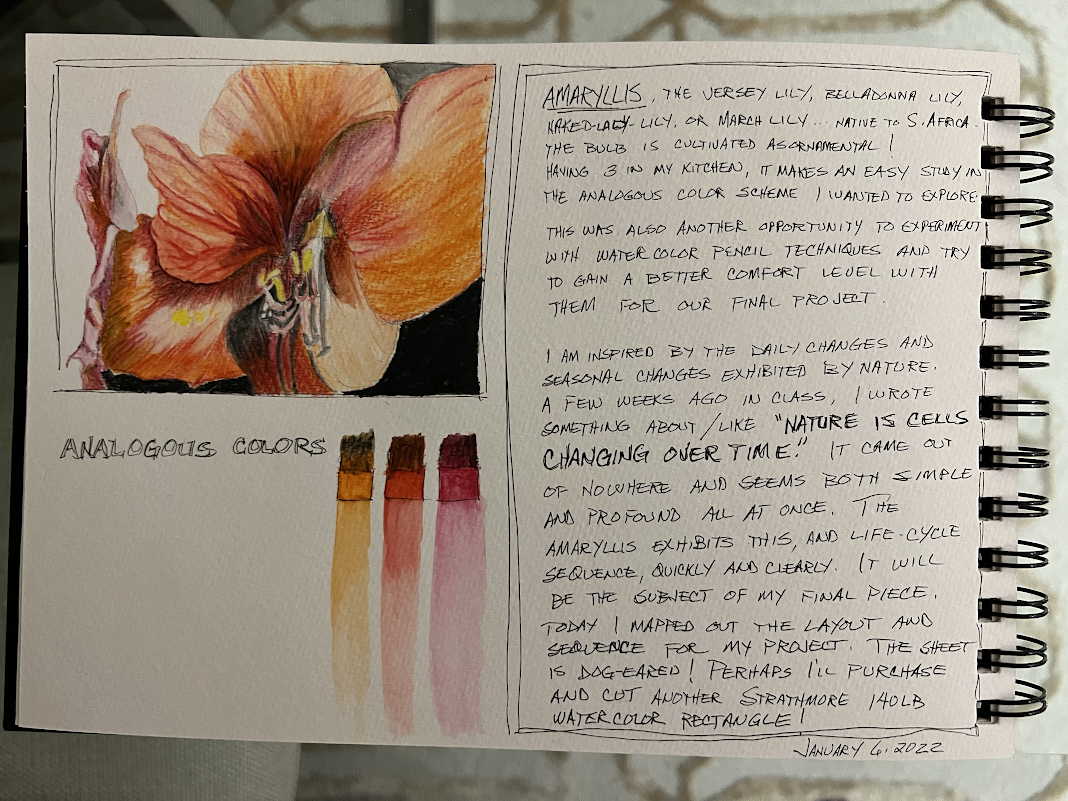 ANALOGOUS COLORS
AMARYLLIS, THE JERSEY LILY, BELLADONNA LILY,
NAKED-LADY-LILY, OR MARCH LILY... NATIVE TO S. AFRICA.
THE BULB IS CULTIVATED AS ORNAMENTAL!
HAVING 3 IN MY KITCHEN, IT MAKES AN EASY STUDY IN
THE ANALOGOUS COLOR SCHEME I WANTED TO EXPLORE.
THIS WAS ALSO ANOTHER OPPORTUNITY TO EXPERIMENT
WITH WATERCOLOR PENCIL TECHNIQUES AND TRY
TO GAIN A BETTER COMFORT LEVEL WITH
THEM FOR OUR FINAL PROJECT.
I AM INSPIRED BY THE DAILY CHANGES AND
SEASONAL CHANGES EXHIBITED BY NATURE.
A FEW WEEKS AGO IN CLASS, I WROTE
SOMETHING ABOUT/LIKE "NATURE IS CELLS
CHANGING OVER TIME." IT CAME OUT
OF NOWHERE AND SEEMS BOTH SIMPLE
AND PROFOUND ALL AT ONCE. THE
AMARYLLIS EXHIBITS THIS, AND LIFE-CYCLE
SEQUENCE, QUICKLY AND CLEARLY. IT WILL
BE THE SUBJECT OF MY FINAL PIECE.
TODAY I MAPPED OUT THE LAYOUT AND
SEQUENCE FOR MY PROJECT. THE SHEET
IS DOG-EARED! PERHAPS I'LL PURCHASE
AND CUT ANOTHER STRATHMORE 140LB
WATERCOLOR RECTANGLE!
JANUARY 6, 2022